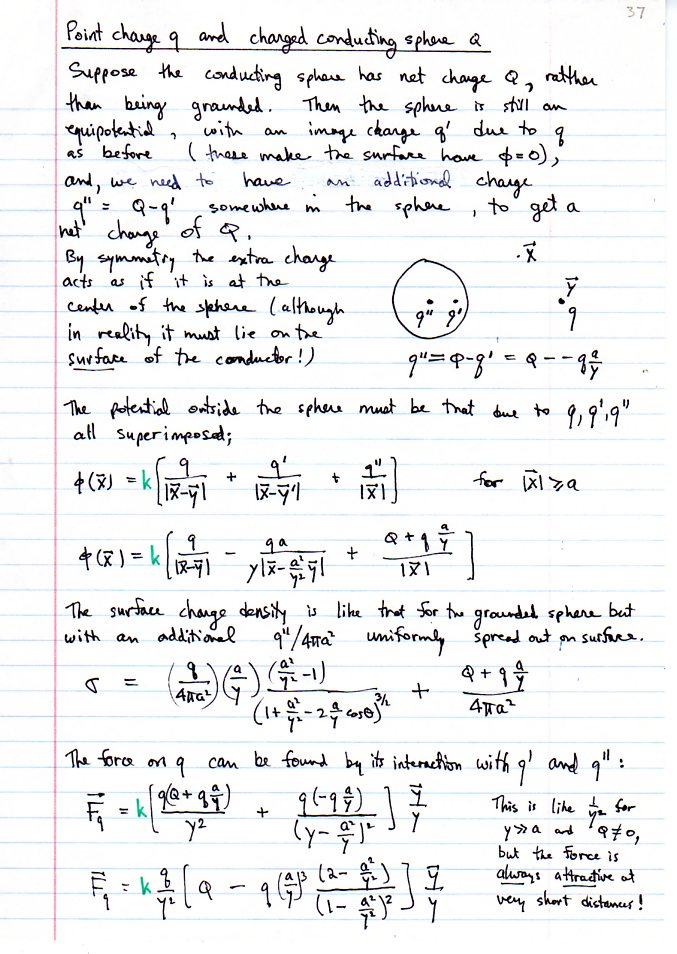 37
Point charge q and charged conducting sphere Q
Suppose the conducting sphere has net charge Q, rather
than being grounded. Then the sphere is still an
equipotential, with an image charge q' due to q
as before (these make the surface have ϕ=0),
and, we need to have an additional charge
q'' = Q-q' somewhere in the sphere, to get a
net charge of Q.
By symmetry the extra charge
acts as if it is at the
center of the sphere (although
in reality it must lie on the
surface of the conductor!)
·x⃗
y⃗
q
q'' q'
q'' = Q-q' = Q - -q a/y
The potential outside the sphere must be that due to q, q', q''
all superimposed;
ϕ(x⃗) = k[ q/|x⃗-y⃗| + q'/|x⃗-y⃗'| + q''/|x⃗| ] for |x⃗| ⩾ a
ϕ(x⃗) = k[ q/|x⃗-y⃗| - qa/(y|x⃗ - a²/y² y⃗|) + (Q + q a/y)/|x⃗| ]
The surface charge density is like that for the grounded sphere but
with an additional q''/4πa² uniformly spread out on surface.
σ = (q/4πa²)(a/y) (a²/y² - 1)/(1 + a²/y² - 2 a/y cosθ)^3/2 + (Q + q a/y)/4πa²
The force on q can be found by its interaction with q' and q'':
F⃗q = k[ q(Q + q a/y)/y² + q(-q a/y)/(y - a²/y)² ] y⃗/y
F⃗q = k q/y² [ Q - q (a/y)³ (2 - a²/y²)/(1 - a²/y²)² ] y⃗/y
This is like 1/y² for
y≫a and Q≠0,
but the force is
always attractive at
very short distances!